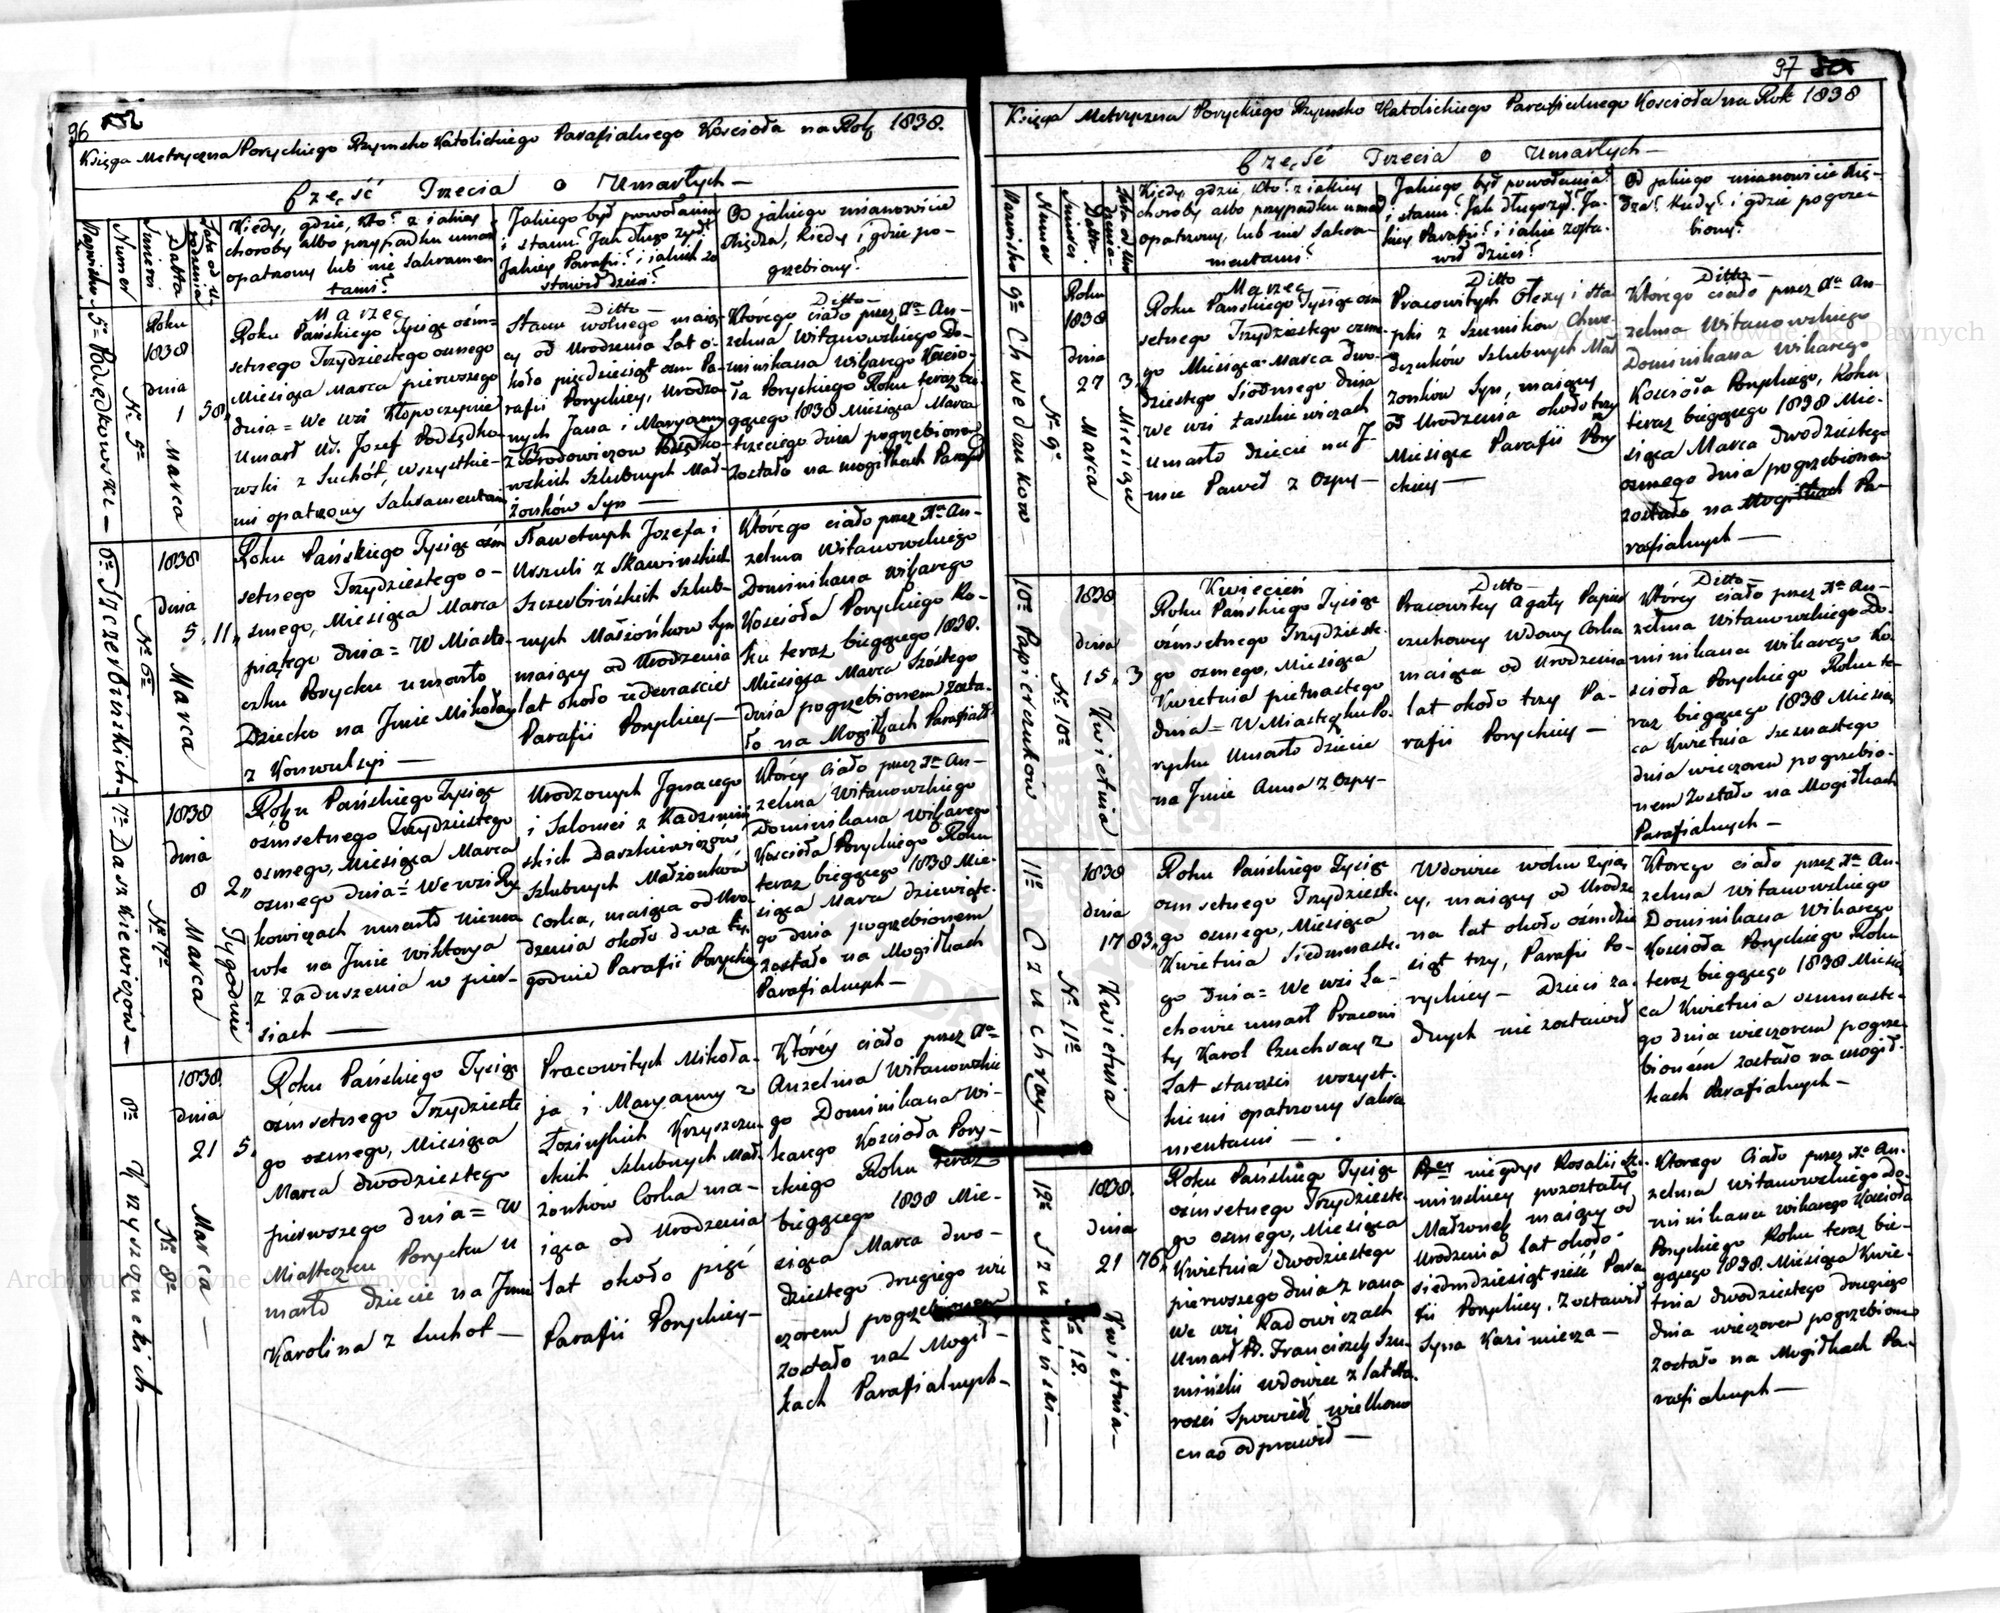 96
Księga Metryczna Poryckiego Rzymsko Katolickiego Parafialnego Kościoła na Rok 1838.
Część Trzecia o Umarłych —
Nazwisko
Numer
Śmierci Datta
Lata od Urodzenia
Kiedy, gdzie, kto? z jakiey
choroby albo przypadku umarł
opatrzony lub nie Sakramen
tami?
Jakiego był powołania
i stanu? Jak długo żył?
Jakiey Parafii? i jakich zo
stawił dzieci?
Od jakiego mianowicie
Xiędza, kiedy i gdzie po-
grzebiony?
5º Podędkowski —
Nº 5º
Roku
1838
dnia
1
Marca
58,
Marzec
Roku Pańskiego Tysiąc ośm-
setnego Trzydziestego osmego
Miesiąca Marca pierwszego
dnia = We wsi Kłopoczynie
Umarł Ur. Jozef Podędko-
wski z Suchot, wszystkie-
mi opatrzony Sakramentami
Ditto —
Stanu wolnego maią-
cy od Urodzenia Lat o-
koło pięćdziesiąt osm Pa-
rafii Poryckiey, Urodzo-
nych Jana i Maryanny
z Brodowiczow Podędko-
wskich Szlubnych Mał-
żonków Syn —
Ditto —
Którego ciało przez Xa An-
zelma Witanowskiego Do-
minikana Wikarego Kościo-
ła Poryckiego Roku teraz bie-
gącego 1838 Miesiąca Marca
trzeciego dnia pogrzebione
Zostało na mogiłkach Parafial
6º Szczerbińskich —
Nº 6º
1838
dnia
5
Marca
11,
Roku Pańskiego Tysiąc ośm
setnego Trzydziestego o-
smego, Miesiąca Marca
piątego dnia = W Miaste-
czku Porycku umarło
Dziecko na Jmie Mikołay
z Konwulsyi —
Sławetnych Jozefa i
Urszuli z Skawińskich
Szczerbińskich Szlub-
nych Małżonków Syn
maiący od Urodzenia
lat około iedenaście
Parafii Poryckiey —
Którego ciało przez Xa An-
zelma Witanowskiego
Dominikana wikarego
Kościoła Poryckiego Ro-
ku teraz biegącego 1838.
Miesiąca Marca Szóstego
dnia pogrzebionem zosta-
ło na Mogiłkach Parafial
7º Daszkiewiczów —
Nº 7º
1838
dnia
8
Marca
2,,
Tygodnie
Roku Pańskiego Tysiąc
ośmsetnego Trzydziestego
osmego, Miesiąca Marca
osmego dnia = We wsi Ry
kowiczach umarło Niemo
wle na Jmie Wiktorya
z Zaduszenia w pier-
siach —
Urodzonych Jgnacego
i Salomei z Radzimiń
skich Daszkiewiczów
Szlubnych Małżonków
Corka, maiąca od Uro
dzenia około dwa ty-
godnie Parafii Poryckiey
Którey Ciało przez Xa An-
zelma Witanowskiego
Dominikana Wikarego
Kościoła Poryckiego Roku
teraz biegącego 1838 Mie-
siąca Marca dziewiąte-
go dnia pogrzebionem
zostało na Mogiłkach
Parafialnych —
8º Krzyszczuckich —
Nº 8º
1838.
dnia
21
Marca —
5,
Roku Pańskiego Tysiąc
ośmsetnego Trzydzieste
go osmego, Miesiąca
Marca dwodziestego
pierwszego dnia = W
Miasteczku Porycku u
marło dziecie na Jmie
Karolina z Suchot —
Pracowitych Mikoła-
ja i Maryanny z
Łozińskich Krzyszczu
ckich Szlubnych Mał-
żonków Corka ma-
iąca od Urodzenia
Lat około pięć
Parafii Poryckiey —
Którey ciało przez Xa
Anzelma Witanowskie
go Dominikana Wi-
karego Kościoła Pory-
ckiego Roku teraz
biegącego 1838 Mie-
siąca Marca dwo-
dziestego drugiego wie
czorem pogrzebionem
Zostało na Mogił-
kach Parafialnych —
97
Księga Metryczna Poryckiego Rzymsko Katolickiego Parafialnego Kościoła na Rok 1838
Część Trzecia o Umarłych —
Nazwisko
Numer
Śmierci Datta.
Lata od Uro
dzenia
Kiedy, gdzie, kto? z jakiey
choroby albo przypadku umarł
opatrzony, lub nie Sakra-
mentami?
Jakiego był powołania
i stanu? Jak długo żył? Ja-
kiey Parafii? i jakie zosta-
wił dzieci?
Od jakiego mianowicie Xię-
dza? kiedy? i gdzie pogrze-
biony?
9º Chwedczuków —
Nº 9º
Roku
1838
dnia
27
Marca
3. Miesiące
Marzec —
Roku Pańskiego Tysiąc ośm
setnego Trzydziestego osme-
go Miesiąca Marca dwo-
dziestego Siodmego dnia
We wsi Łaszkiewiczach
Umarło dziecie na J-
mie Paweł z Ospy —
Ditto
Pracowitych Olexy i Na
pki z Szumików Chwe-
dczuków Szlubnych Mał
żonków Syn, maiący
od Urodzenia około trzy
Miesiące Parafii Pory
ckiey —
Ditto —
Którego ciało przez Xa An-
zelma Witanowskiego
Dominikana Wikarego
Kościoła Poryckiego, Roku
teraz biegącego 1838 Mie-
siąca Marca dwodziestego
osmego dnia pogrzebionem
zostało na Mogiłkach Pa-
rafialnych —
10º Papierzuków
Nº 10º
1838
dnia
15,
Kwietnia
3
Kwiecień
Roku Pańskiego Tysiąc
ośmsetnego Trzydzieste-
go osmego, Miesiąca
Kwietnia pietnastego
dnia = W Miasteczku Po-
rycku Umarło dziecie
na Jmie Anna z Ospy —
Ditto —
Pracowitey Agaty Papier
czukowey Wdowy Corka
maiąca od Urodzenia
lat około trzy Pa-
rafii Poryckiey —
Ditto —
Którey ciało przez Xa An-
zelma Witanowskiego Do-
minikana Wikarego Ko-
ścioła Poryckiego Roku te-
raz biegącego 1838 Miesią
ca Kwietnia szesnastego
dnia wieczorem pogrzebio-
nem Zostało na Mogiłkach
Parafialnych —
11º Czuchray —
Nº 11º
1838
dnia
17
Kwietnia
83,
Roku Pańskiego Tysiąc
ośmsetnego Trzydzieste-
go osmego, Miesiąca
Kwietnia Siedmnaste-
go dnia = We wsi La-
chowie umarł Pracowi
ty Karol Czuchray z
Lat starości wszyst-
kiemi opatrzony Sakra
mentami —
Wdowiec wolno żyią
cy, maiący od Urodze
nia lat około ośmdzie
siąt trzy, Parafii Po-
ryckiey — Dzieci ża-
dnych nie zostawił
Którego ciało przez Xa An-
zelma Witanowskiego
Dominikana Wikarego
Kościoła Poryckiego Roku
teraz biegącego 1838 Miesią
ca Kwietnia osmnaste-
go dnia wieczorem pogrze-
bionem zostało na mogił-
kach Parafialnych —
12º Szumiński —
Nº 12.
1838.
dnia
21
Kwietnia —
76,
Roku Pańskiego Tysiąc
ośmsetnego Trzydzieste-
go osmego, Miesiąca
Kwietnia dwodziestego
pierwszego dnia z rana
We wsi Radowiczach
Umarł Ur. Franciszek Szu-
miński wdowiec z lat sta-
rości Spowiedź wielkono
cną odprawił —
niegdyś Rosalii Szu-
minskiey pozostały
Małżonek maiący od
Urodzenia lat około-
siedmdziesiąt sześć Para
fii Poryckiey, Zostawił
Syna Kazimierza —
Którego Ciało przez Xa An-
zelma Witanowskiego Do-
minikana wikarego Kościoła
Poryckiego Roku teraz bie-
gącego 1838. Miesiąca Kwie-
tnia dwodziestego drugiego
dnia wieczorem pogrzebione
zostało na Mogiłkach Pa-
rafialnych —
Archiwum Główne Akt Dawnych
Archiwum Główne Akt Dawnych